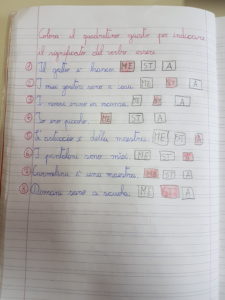 Colora il quadratino giusto per indicare
il significato del verbo essere
① Il gatto è bianco. ME ST A
② I miei genitori sono a casa. ME ST A
③ I nonni sono in cucina. ME ST A
④ Io ero piccolo. ME ST A
⑤ L'astuccio è della maestra. ME ST A
⑥ I pantaloni sono miei. ME ST A
⑦ Carmelina è una maestra. ME ST A
⑧ Domani sarò a scuola. ME ST A